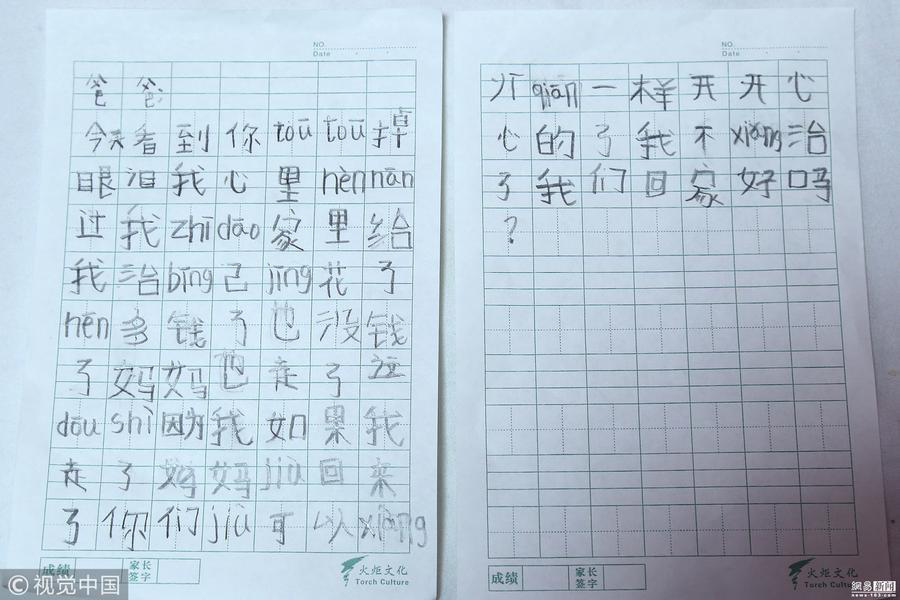 NO.
Date
爸爸
今天看到你toū toū掉
眼泪我心里hèn nān
过我zhī dāo家里给
我治bīng己jīng花了
hēn多钱了也没钱
了妈妈也走了这
dōu shì因为我如果我
走了妈妈jiù回来
了你们jiù可以xiàng
成绩
家长
签字
火炬文化
Torch Culture
NO.
Date
qiān一样开开心
心的了我不xiǎng治
了我们回家好吗
?
成绩
家长
签字
火炬文化
Torch Culture
©视觉中国
網易新闻
news.163.com